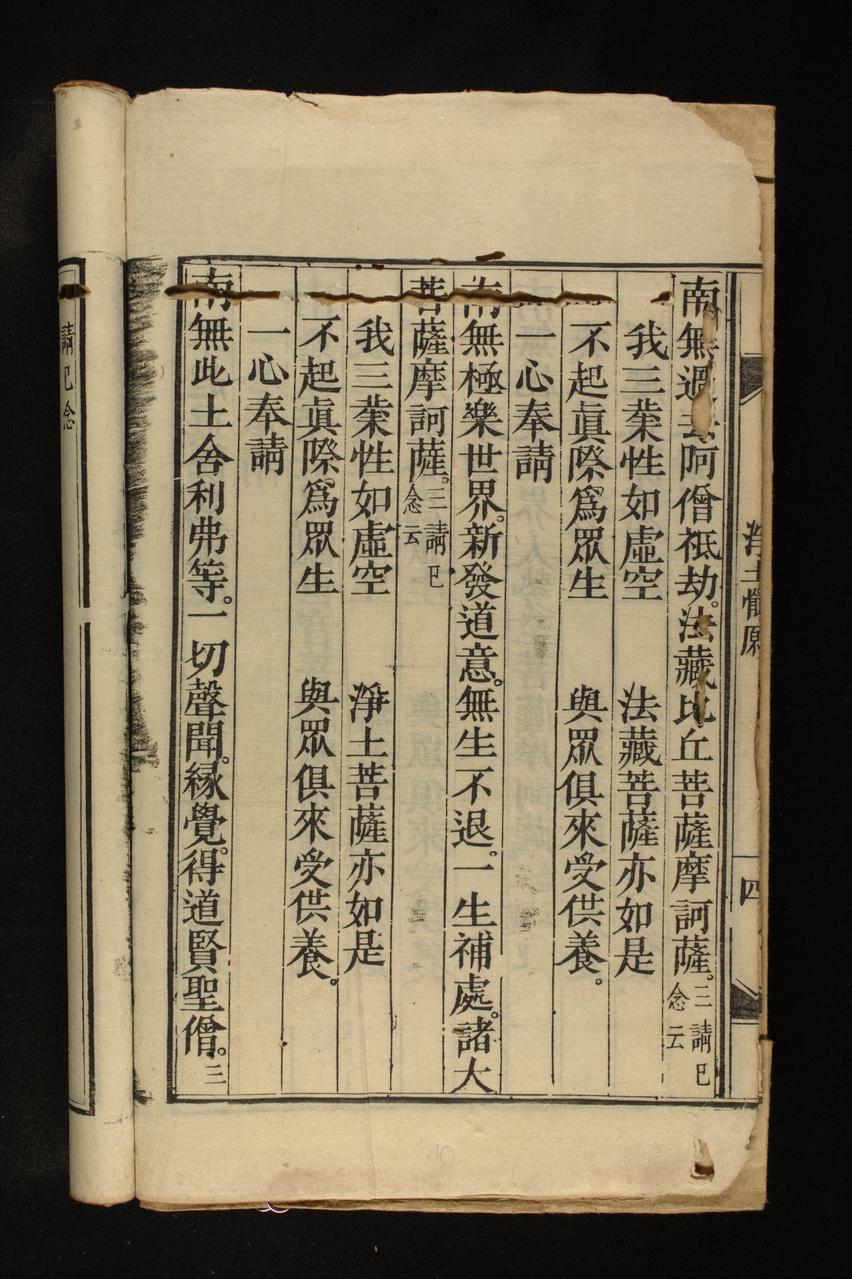 淨土懺願
四
南無過去阿僧祇劫。法藏比丘菩薩摩訶薩。三請已念云
我三業性如虛空　法藏菩薩亦如是
不起眞際爲眾生　與眾俱來受供養。
一心奉請
南無極樂世界。新發道意。無生不退。一生補處。諸大
菩薩摩訶薩。三請已念云
我三業性如虛空　淨土菩薩亦如是
不起眞際爲眾生　與眾俱來受供養。
一心奉請
南無此土舍利弗等。一切聲聞。緣覺。得道賢聖僧。三
請已念